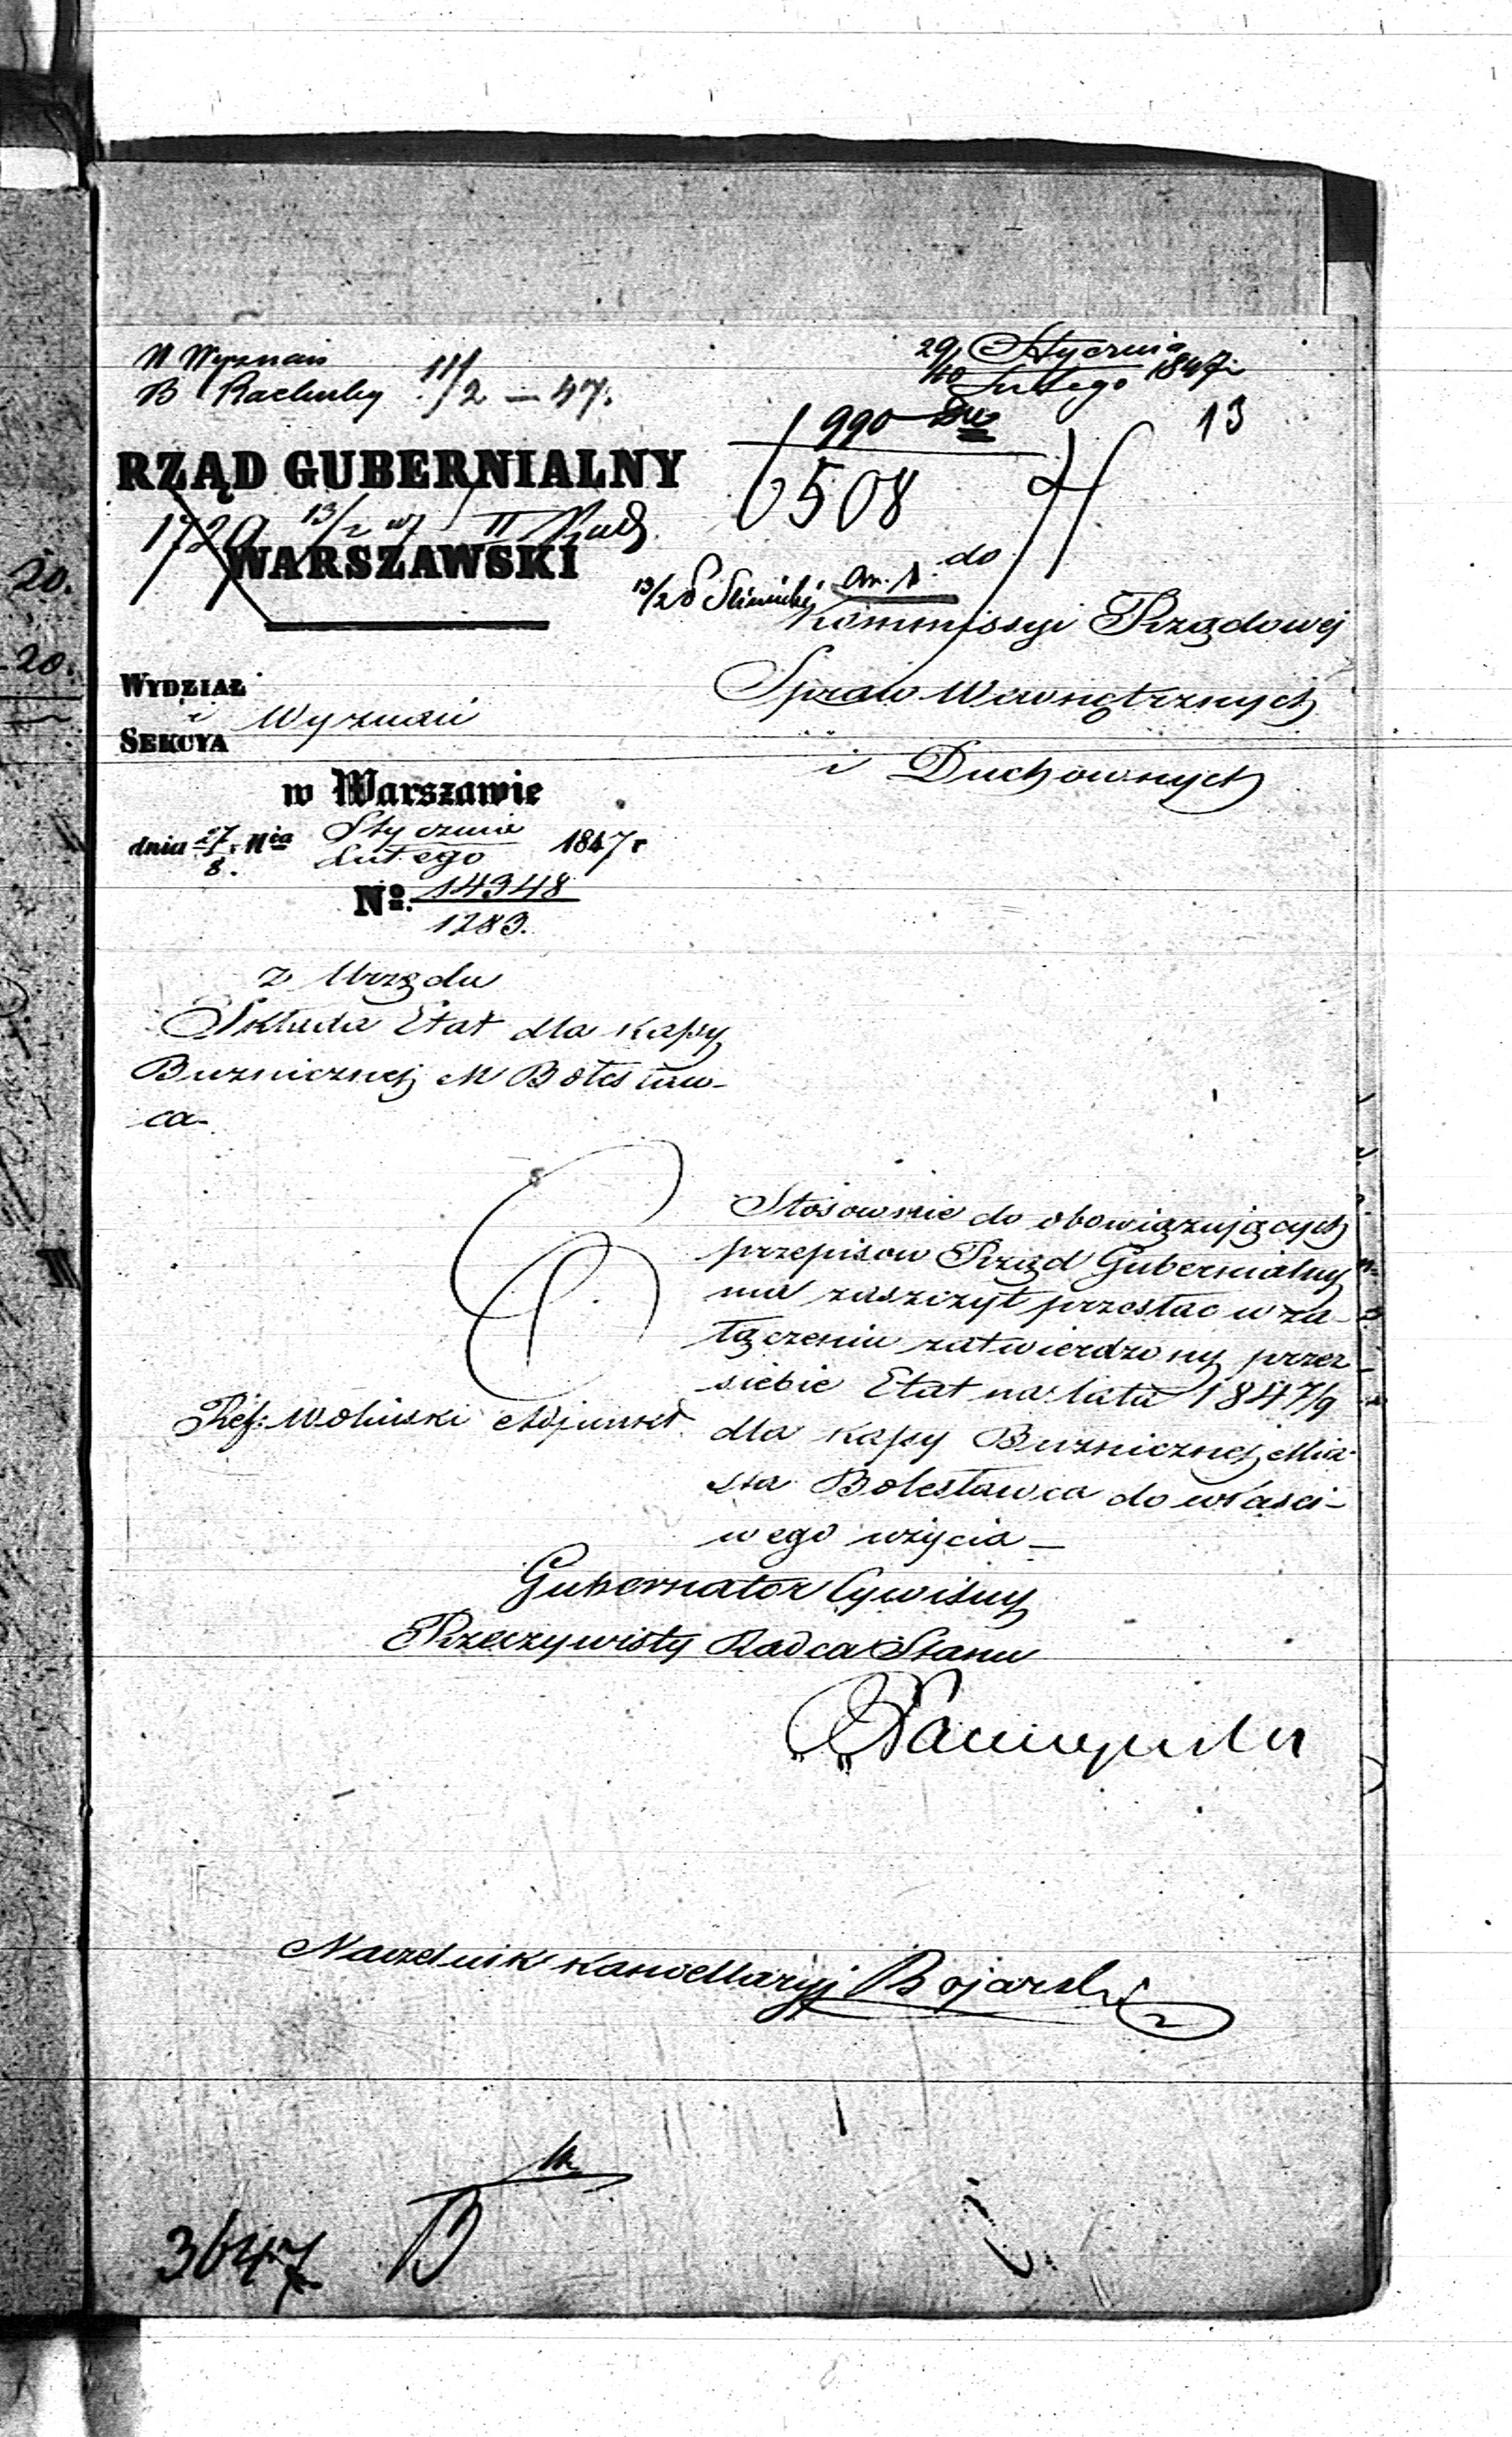 W Wyznań
B Rachuby 11/2 – 47.
29/10 Stycznia
Lutego 1847r
13
990
6508
RZĄD GUBERNIALNY
1729 13/2 47 II Rach
WARSZAWSKI
do
13/2
Kommissyi Rządowej
Spraw Wewnętrznych
i Duchownych
WYDZIAŁ
i Wyznań
SEKCYA
w Warszawie
dnia 27/8. Nia Stycznia
Lutego 1847r
No. 14348
1283.
z Urzędu
Składa Etat dla Kassy
Buzniczney M Bolesław-
ca
Stósownie do obowiązujących
przepisow Rząd Gubernialny
ma zaszczyt przesłac w za-
łączeniu zatwierdzony przez
siebie Etat na lata 1847/9
Ref: Woliński Adjunkt.
dla Kassy Buzniczney Mia-
sta Bolesławca do właści-
wego użycia –
Gubernator Cywilny
Rzeczywisty Radca Stanu
Naczelnik Kancellaryi Bojarski
3647
B